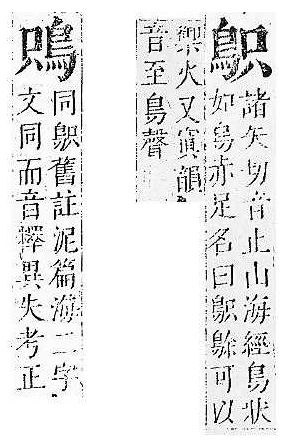 諸矢切音止山海經鳥狀
如烏赤足名曰鵌可以
禦火又寘韻
音至鳥聲
同舊註泥篇海二字
文同而音釋異失考正